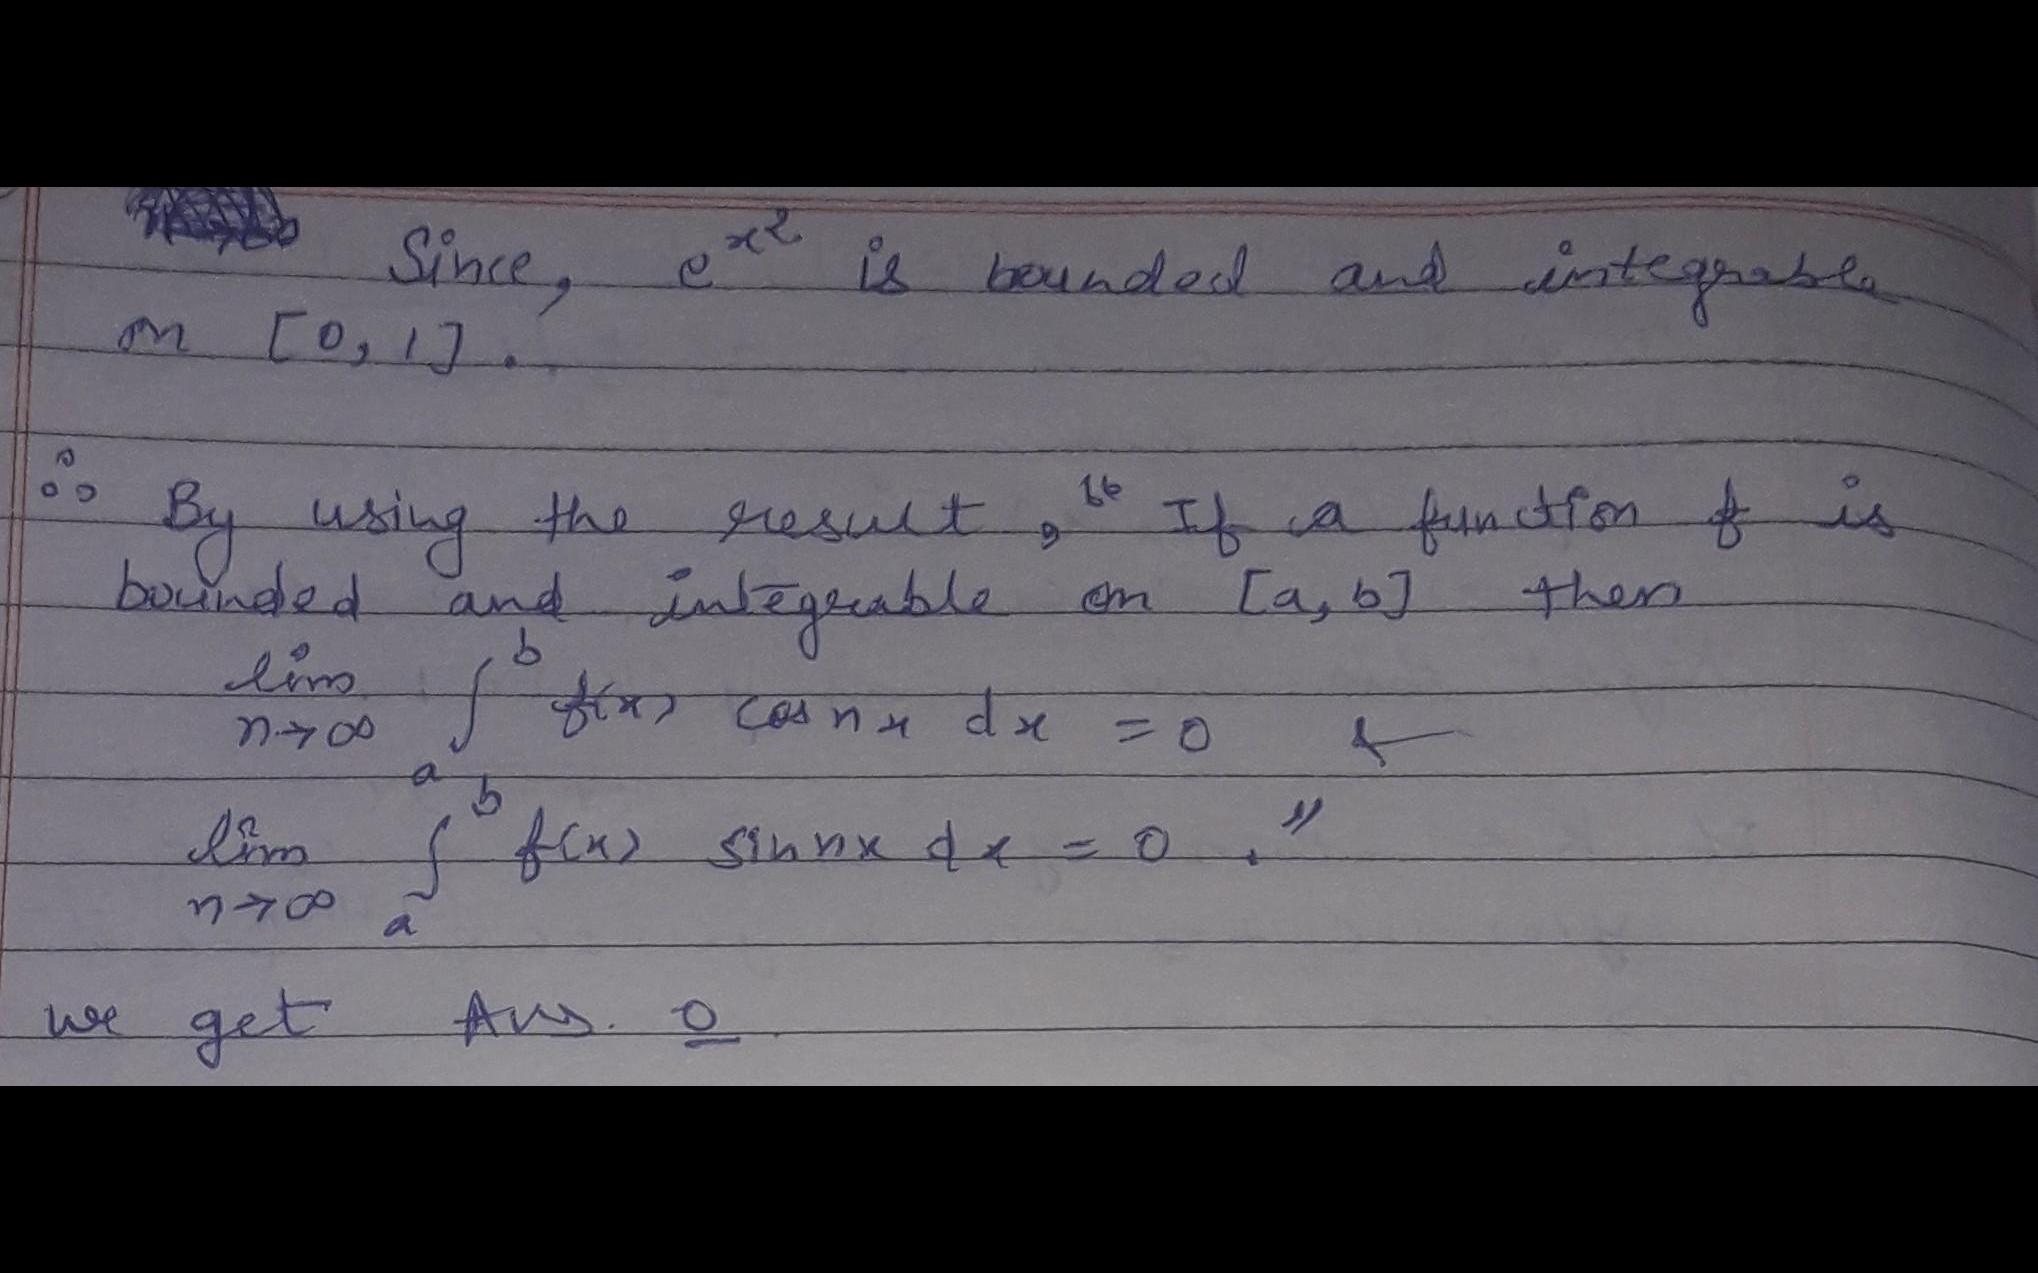 Since, e^{x^2} is bounded and integrable
on [0, 1].
∴ By using the result, "If a function f is
bounded and integrable on [a, b] then
lim_{n→∞} ∫_a^b f(x) cos nx dx = 0 &
lim_{n→∞} ∫_a^b f(x) sin nx dx = 0."
we get Ans. 0